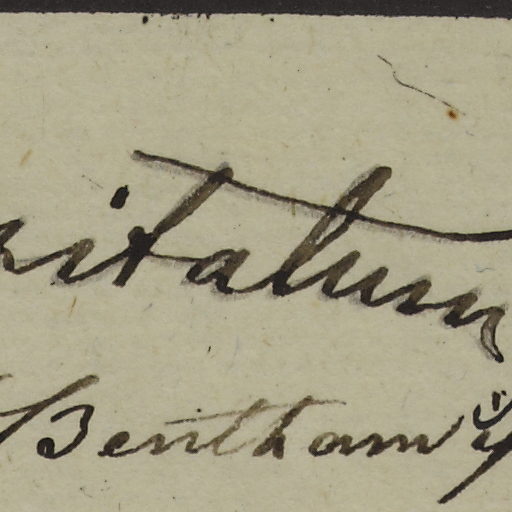 ritatum
Bentham